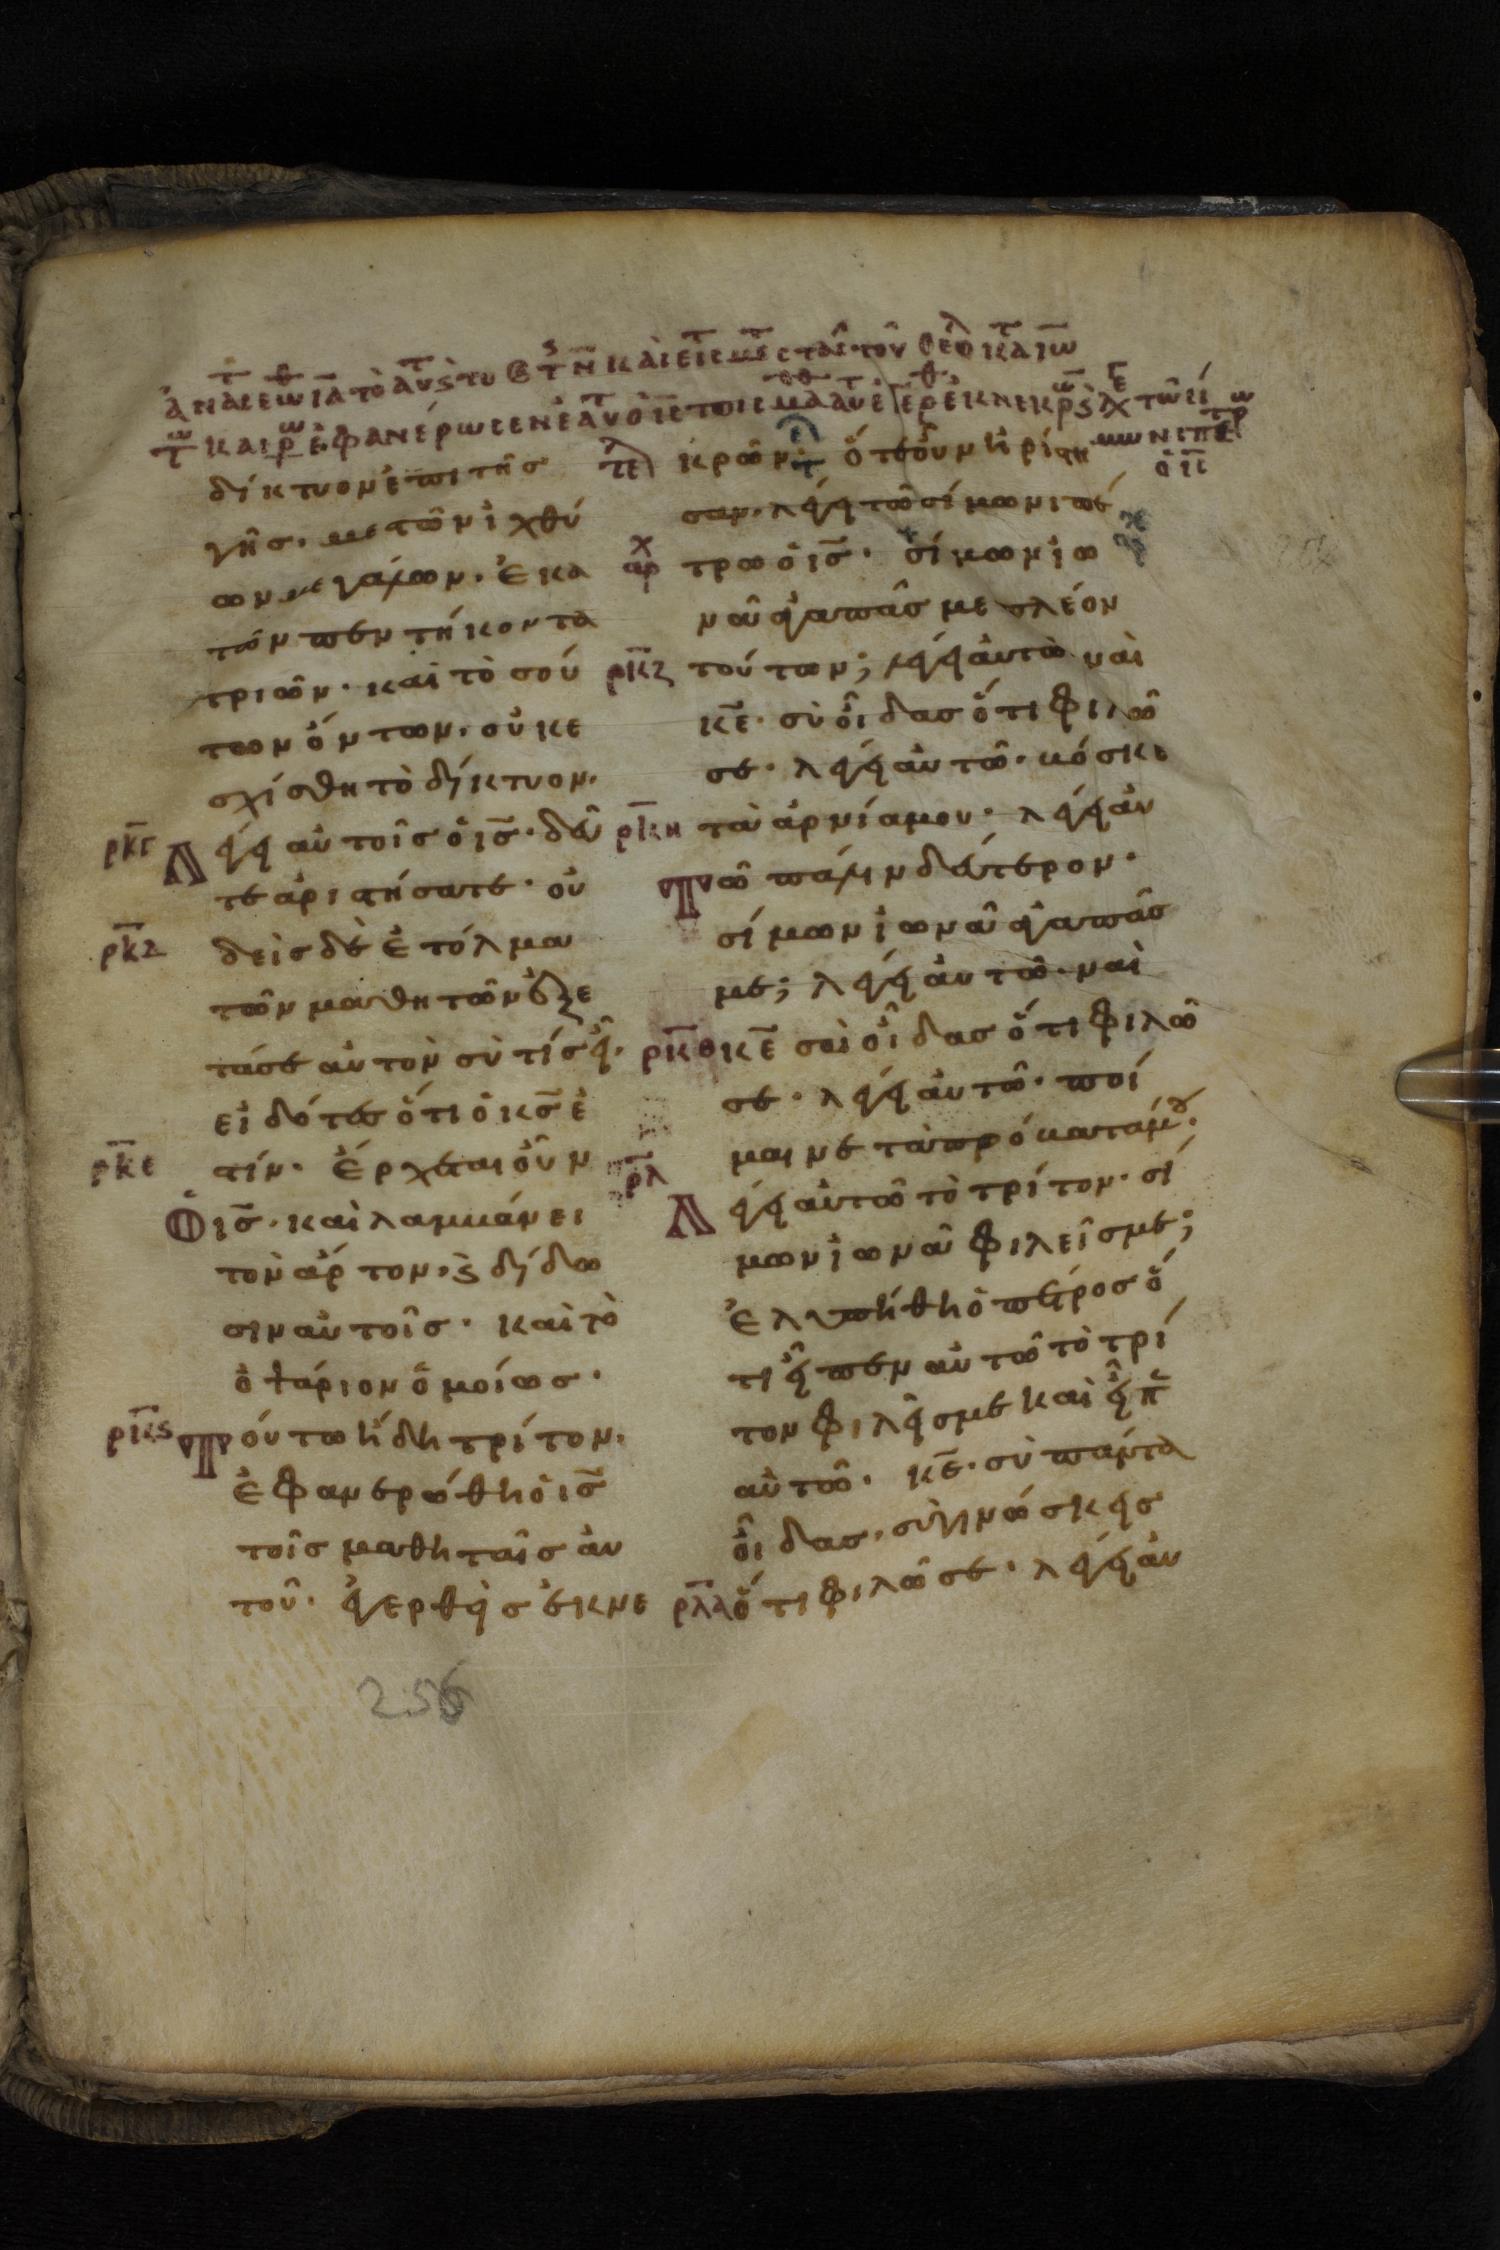 δίκτυον ἐπι τῆσ
γῆσ. με τῶν ἰχθύ
ων μεγάλων. ἑκα
τὸν πεν τήκοντα
τριῶν. καὶ τὸ σού
των ὄντων. οὐκ ε
σχίσθη τὸ δίκτυον.
ρκγ Λέγει αὐτοῖσ ὁ ισ. δεῦ
τε ἀριστήσατε. οὐ
ρκδ δεὶσ δὲ ἐτόλμα
τῶν μαθητῶν ἐξε
τάσε αὐτον σὺ τίσ εἶ.
εἰδότεσ ὅτι ὁ κσ ἐ
ρκε στίν. ἔρχεται οὖν
Ὁ ισ. καὶ λαμβάνει
τὸν ἄρτον. ϛ δίδω
σιν αὐτοῖσ. καὶ τὸ
ὀψάριον ὁμοίωσ.
ρκϛ Τούτω ἤδη τρίτον.
ἐφανερώθη ὁ ισ
τοῖσ μαθηταῖσ αὐ
τοῦ. ἐγερθεὶσ ἐκ νε
κρῶν. ὅτε οὖν ἠρίστη
σαν. λέγει τῶ σίμωνι πέ
τρω ὁ ισ. σίμων ἰω
νᾶ ἀγαπᾶσ με πλέον
ρκζ τούτων; λέγει αὐτῶ ναὶ
κε. σὺ οἶδασ ὅτι φιλῶ
σε. λέγει αὐτῶ. βόσκε
ρκη τὰ ἀρνία μου. λέγει αὐ
Τῶ πάλιν δεύτερον.
σίμων ἰωνᾶ ἀγαπᾶσ
με; λέγει αὐτῶ. ναὶ
ρκθ κε σοὶ οἶδασ ὅτι φιλῶ
σε. λέγει αὐτῶ. ποί
μαινε τὰ πρόβατά μου.
ρλ Λέγει αὐτῶ τὸ τρίτον. σί
μων ἰωνᾶ φιλεῖσ με;
Ἐλυπήθη ὁ πέτροσ ὅ
τι εἶπεν αὐτῶ τὸ τρί
τον φιλεῖσ με καὶ εἶπ
αὐτῶ. κε. σὺ πάντα
οἶδασ. σὺ γινώσκεισ
ρλα ὅτι φιλῶ σε. λέγει αὐ
256